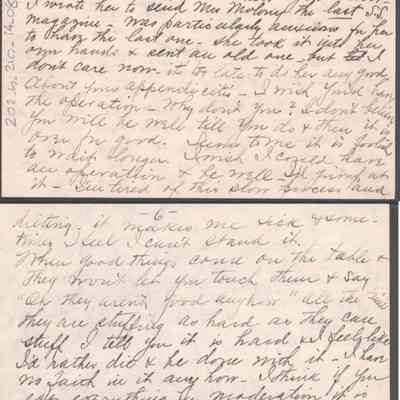 I wrote her to send Mrs Molony the last S.S.
magazine - was particularly anxious for her
to have the last one. She took it with her
own hands & sent an old one - but I
don't care now - it is too late to do her any good.
About your appendicitis - I wish you'd have
the operation - Why don't you? I don't believe
you will be well till you do & then it is
over for good. Seems to me it is foolish
to wait longer. I wish I could have
an operation & be well I'd jump at
it - I'm tired of this slow process and
-6-
dieting. it makes me sick & some-
times I feel I can't stand it.
When good things come on the table &
they won't let you touch them & say
"Oh they aren't good anyhow" all the time
they are stuffing as hard as they can
stuff I tell you it is hard & I feel like
I'd rather die & be done with it - I have
no faith in it anyhow - I think if you
everything in moderation it is
202